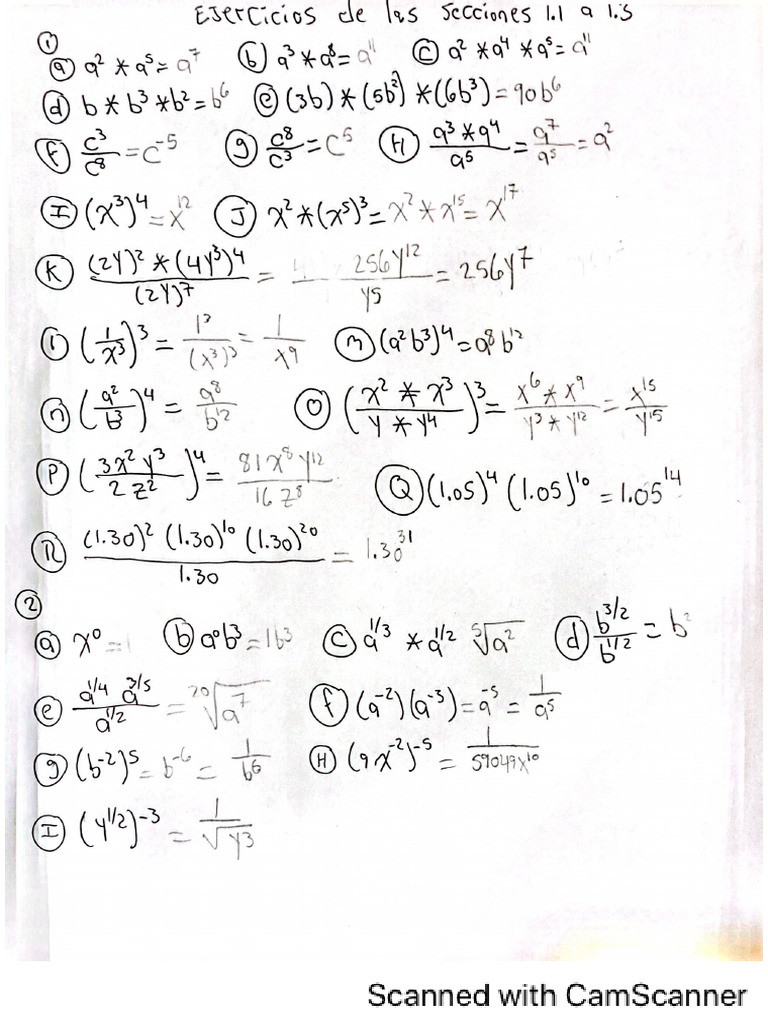 Ejercicios de las secciones 1.1 a 1.5
①
ⓐ a² * a⁵ = a⁷ ⓑ a³ * a⁸ = a¹¹ ⓒ a² * a⁴ * a⁵ = a¹¹
ⓓ b * b³ * b² = b⁶ ⓔ (3b) * (5b²) * (6b³) = 90b⁶
ⓕ c³/c⁸ = c⁻⁵ ⓖ c⁸/c³ = c⁵ Ⓗ (a³ * a⁴)/a⁵ = a⁷/a⁵ = a²
Ⓘ (x³)⁴ = x¹² Ⓙ x² * (x⁵)³ = x² * x¹⁵ = x¹⁷
Ⓚ ((2y)² * (4y³)⁴)/(2y)⁷ = 256y¹²/y⁵ = 256y⁷
ⓛ (1/x³)³ = 1³/(x³)³ = 1/x⁹ ⓜ (a²b³)⁴ = a⁸b¹²
ⓝ (a²/b³)⁴ = a⁸/b¹² Ⓞ ((x² * x³)/(y * y⁴))³ = (x⁶ * x⁹)/(y³ * y¹²) = x¹⁵/y¹⁵
Ⓟ (3x²y³/2z²)⁴ = 81x⁸y¹²/16z⁸ Ⓠ (1.05)⁴ (1.05)¹⁰ = 1.05¹⁴
Ⓡ ((1.30)² (1.30)¹⁰ (1.30)²⁰)/1.30 = 1.30³¹
②
ⓐ x⁰ = 1 ⓑ a⁰b³ = 1b³ ⓒ a^1/3 * a^1/2 ⁵√a² ⓓ b^3/2/b^1/2 = b
ⓔ (a^1/4 a^3/5)/a^1/2 = ²⁰√a⁷ ⓕ (a⁻²)(a⁻³) = a⁻⁵ = 1/a⁵
ⓖ (b⁻²)⁵ = b⁻⁶ = 1/b⁶ Ⓗ (9x⁻²)⁻⁵ = 1/59049x¹⁰
Ⓘ (y^1/2)⁻³ = 1/√y³
Scanned with CamScanner